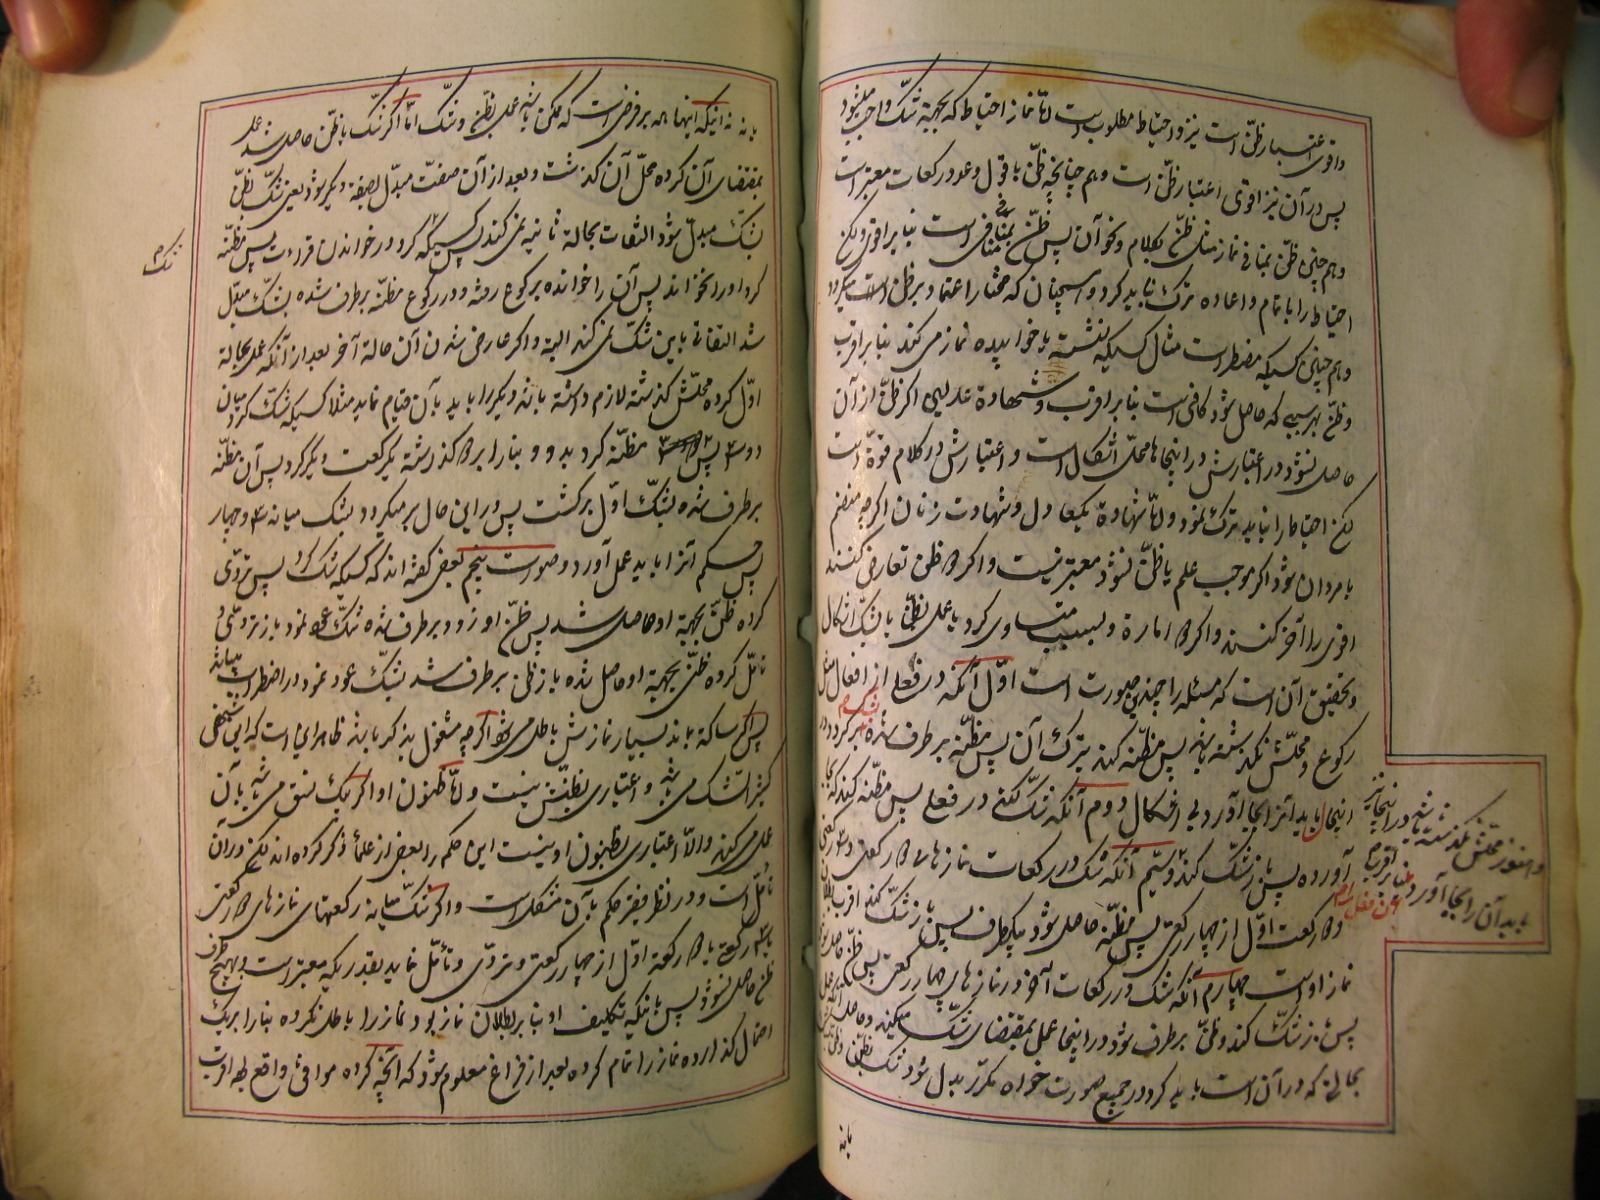 و اقوی اعتبار ظنّ است نیز و احتیاط مطلوب است امّا نماز احتیاط که بجهة شک واجب میشود
پس در آن نیز اقوی اعتبار ظنّ است و هم چنانچه ظنّ باقوال و عدد رکعات معتبر است
و هم چنین ظنّ بمنافی نماز مثل ظنّ بکلام و نحو آن پس ظنّ بمنافی منافی است بنا بر اقوی و لکن
احتیاط را باتمام و اعاده ترک نباید کرد
و هم چنین کسیکه مضطر است مثال کسیکه نشسته یا خوابیده نماز می کند بنا بر اقرب
و ظنّ بهر سببی که حاصل شود کافی است بنا بر اقرب و شهادة عدلین اگر ظنّ از آن
حاصل نشود در اعتبارش در اینجاها محلّ اشکال است و اعتبارش در کلام قوّة است
لکن احتیاط را نباید ترک نمود و امّا شهادة یکعادل و شهادت زنان اگرچه منضم
بامردان شود اگر موجب علم یا ظنّ نشود معتبر نیست و اگر دو ظن تعارض کنند
اقوی را اخذ کنند و اگر دو امارة و سبب متساوی کرد یا عمل بظنّ یا بشک اشکال
و تحقیق آن است که مسئله را چندین صورت است اوّل آنکه در فعلی از افعال مثل
رکوع و محلّش نگذشته باشد پس مظنّه کند بترک آن پس مظنّه برطرف شده
اینجا باید آنرا بجا آورد بی اشکال دوم آنکه شک کند در فعلی پس مظنّه کند که بجا
آورده پس باز شک کند و سیّم آنکه شک در رکعات نمازهای دو رکعتی و سه رکعتی
و دو رکعت اوّل از چهار رکعتی پس مظنّه حاصل شود بیکطرف پس باز شک کند اقرب بطلان
نماز او است چهارم آنکه شک در رکعات آخر در نمازهای چهار رکعتی پس ظنّ حاصل شود
پس باز شک کند و ظنّ برطرف شود در اینجا عمل بمقتضای شک میکند
بحالتی که در آن است باید کرد در جمیع صورت خواه مکرّر بدل شود شک بظنّ و ظنّ
و هنوز محلّش نگذشته باشد در اینجا نیز
باید آن را بجا آورد بنا بر اقرب
یا نه
یا نه نه آنیکه اینها همه بر فرضی است که ممکن باشد عمل بظنّ و شک امّا اگر شک یا ظنّ حاصل شد و عمل
بمقتضای آن کرده محلّ آن گذشت و بعد از آن صفت مبدّل بصفة دیگر شود یعنی شکّ بظنّ
بشکّ مبدّل شود التفات بحالة ثانیه نمی کند پس کسیکه شک کرد در خواندن قرائت پس مظنّه
کرد او را نخوانده پس آن را خوانده برکوع رفته و در رکوع مظنّه برطرف شده بشک مبدّل
شد التفاتی باین شک نمی کند البته و اگر عارض شدن آن حالة آخر بعد از آنکه عمل بحالة
اوّل کرده محلّش گذشته لازم داشته باشد دیگر را باید بآن قیام نماید مثلا کسیکه شک کرد میان
دو و سه پس مظنّه کرد بدو و بنا را بر دو گذاشته یکرکعت دیگر کرد پس آن مظنّه
برطرف شده بشکّ اوّل برگشت پس در این حال بر میگردد بشک میانه سه و چهار
پس حکم آنرا باید عمل آورد و صورت پنجم بعضی گفته اند که کسیکه شک کرد پس تروّی
کرده ظنّ بجهة او حاصل شد پس ظنّ او زود برطرف شده شک عود نمود باز تروّی و
تأمّل کرده ظنّی بجهة او حاصل شده باز ظن برطرف شد بشک عود نمود در اضطراب میباشد
پس اگر ساکة باشد بسیار نمازش باطل می شود اگرچه مشغول بذکر باشد ظاهر این است که این شخص
کثیر الشک می باشد و اعتباری بظنّش نیست و امّا ظنون او اگر یک نسق می باشد بآن
عمل می کند و الّا اعتباری بظنون او نیست این حکم را بعض از علماء ذکر کرده اند لکن در آن
تأمّل است و در نظر فقیر حکم بآن مشکل است و اگر شک نماید در رکعتهای نمازهای دو رکعتی
یا سه رکعتی یا دو رکعة اوّل از چهار رکعتی و تروّی و تأمّل نماید بقدریکه معتبر است و بهیچ طرف
ظنّ حاصل نشود پس باینکه تکلیف او بنا بر بطلان نماز بود نماز را باطل نکرده بنا را بر یک
احتمال گذارده نماز را تمام کرده بعد از فراغ معلوم شود که آنچه کرده موافق واقع بود اقرب
شک